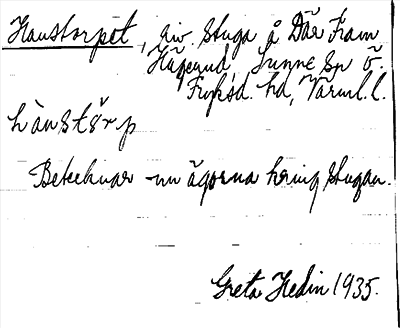 Hanstorpet, av. Stuga å Där Fram
Hägerud, Sunne Sn Ö.
Fryksd. hd, Värml. l.
hànstårp
Betecknar nu ägorna kring stugan.
Greta Hedin 1935.